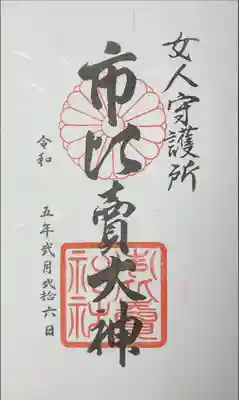 女人守護所
市比賣大神
令和
五年弐月弐拾六日